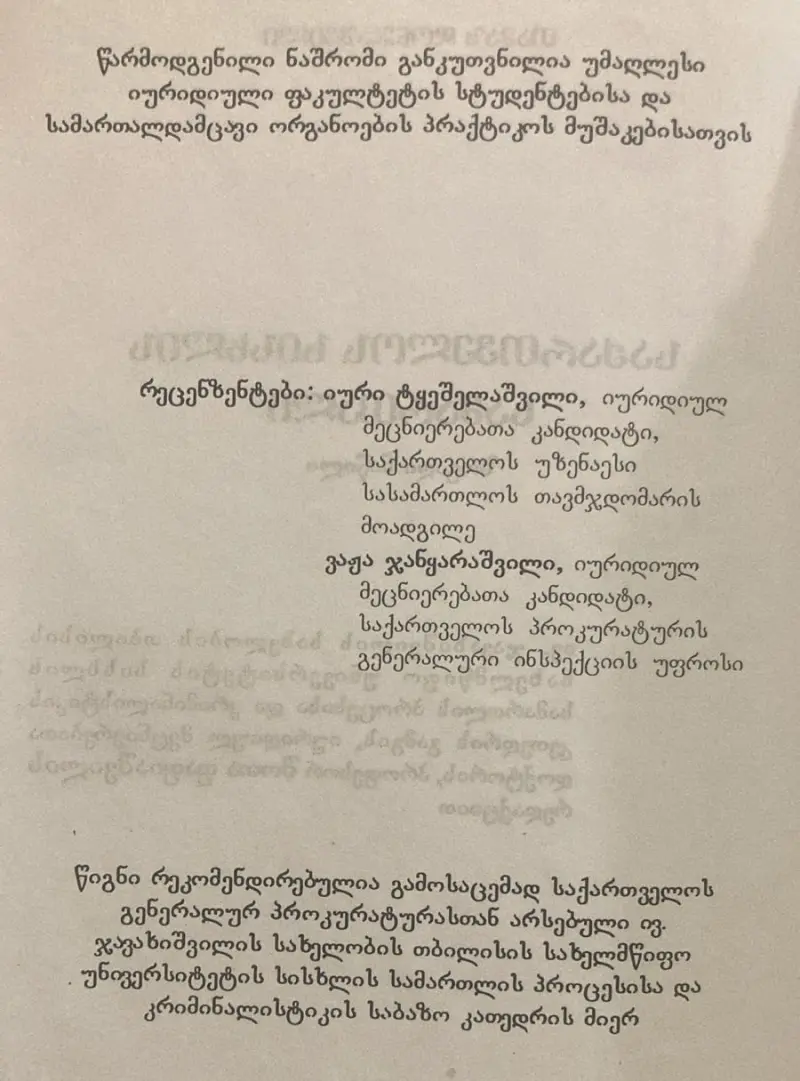 წარმოდგენილი ნაშრომი განკუთვნილია უმაღლესი
იურიდიული ფაკულტეტის სტუდენტებისა და
სამართალდამცავი ორგანოების პრაქტიკოს მუშაკებისათვის
რეცენზენტები: იური ტყეშელაშვილი, იურიდიულ
მეცნიერებათა კანდიდატი,
საქართველოს უზენაესი
სასამართლოს თავმჯდომარის
მოადგილე
ვაჟა ჯანყარაშვილი, იურიდიულ
მეცნიერებათა კანდიდატი,
საქართველოს პროკურატურის
გენერალური ინსპექციის უფროსი
წიგნი რეკომენდირებულია გამოსაცემად საქართველოს
გენერალურ პროკურატურასთან არსებული ივ.
ჯავახიშვილის სახელობის თბილისის სახელმწიფო
უნივერსიტეტის სისხლის სამართლის პროცესისა და
კრიმინალისტიკის საბაზო კათედრის მიერ